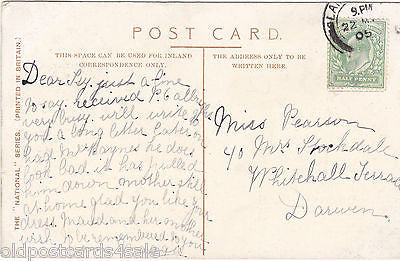 POST CARD.
THIS SPACE CAN BE USED FOR INLAND
CORRESPONDENCE ONLY.
THE ADDRESS ONLY TO BE
WRITTEN HERE.
THE "NATIONAL" SERIES. (PRINTED IN BRITAIN.)
9.PM
22
05
HALF PENNY
Dear just a line
to say received P.C all
very busy will write
you a long letter later on
had Mr Haynes he does
look bad it has pulled
him down mother still
at home glad you like your
dress Maud and her mother
wish to be remembered to you
Miss Pearson
40 Mrs Stockdale
Whitehall Terrace
Darwen
oldpostcards4sale